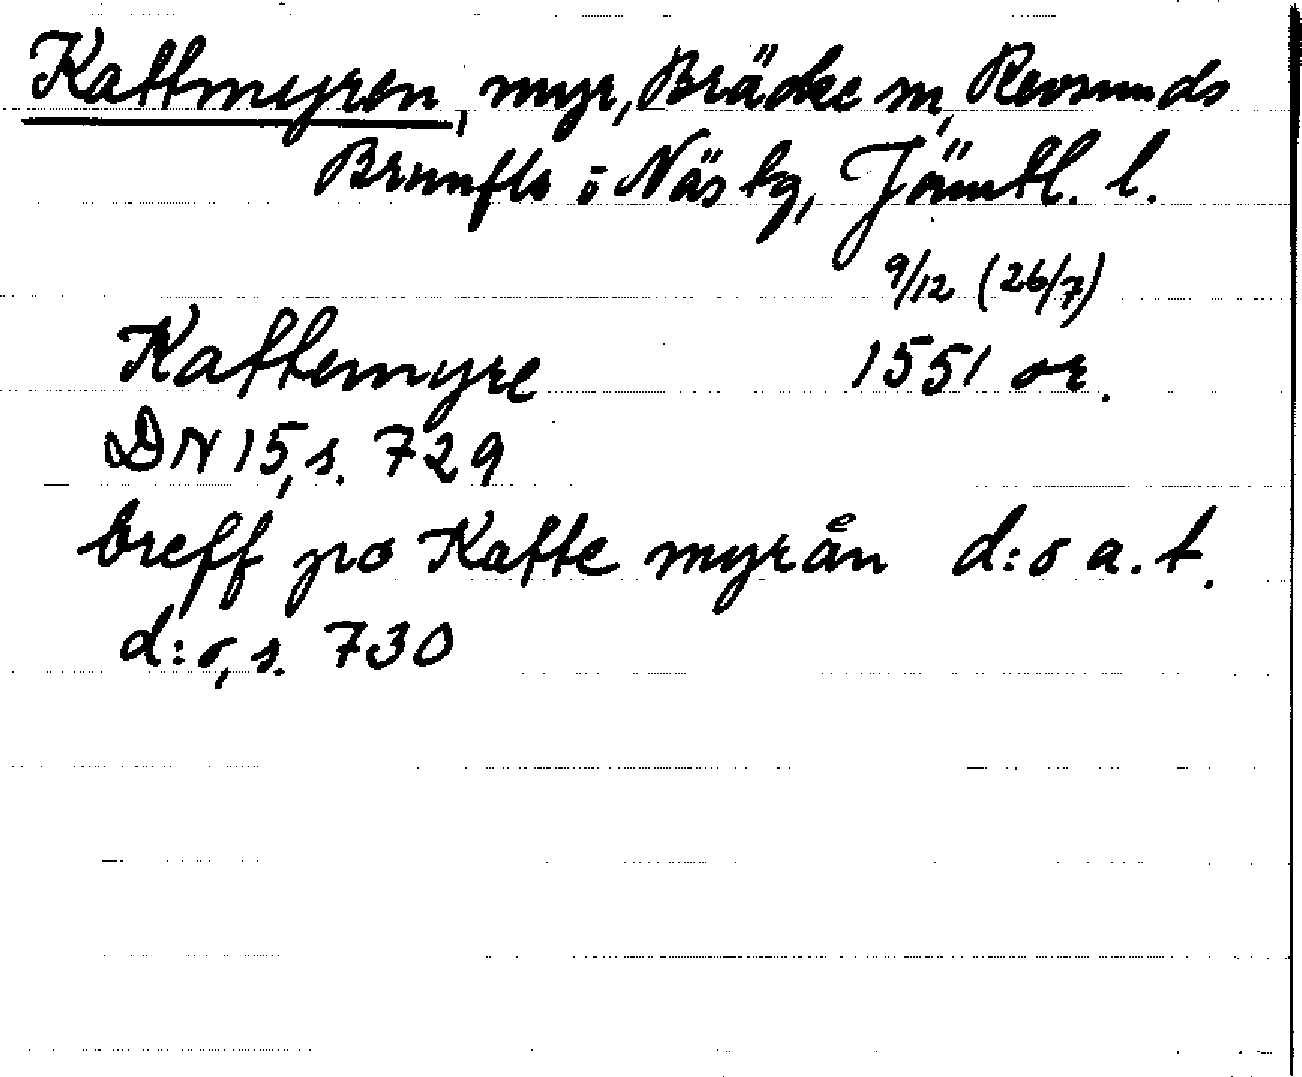 Kattmyren, myr, Bräcke sn, Revsunds
Brunflo o Näs tg, Jämtl. l.
9/12 (26/7)
Kattemyre 1551 or.
DN 15, s. 729
breff po Katte myrån d:o a. t.
d:o, s. 730